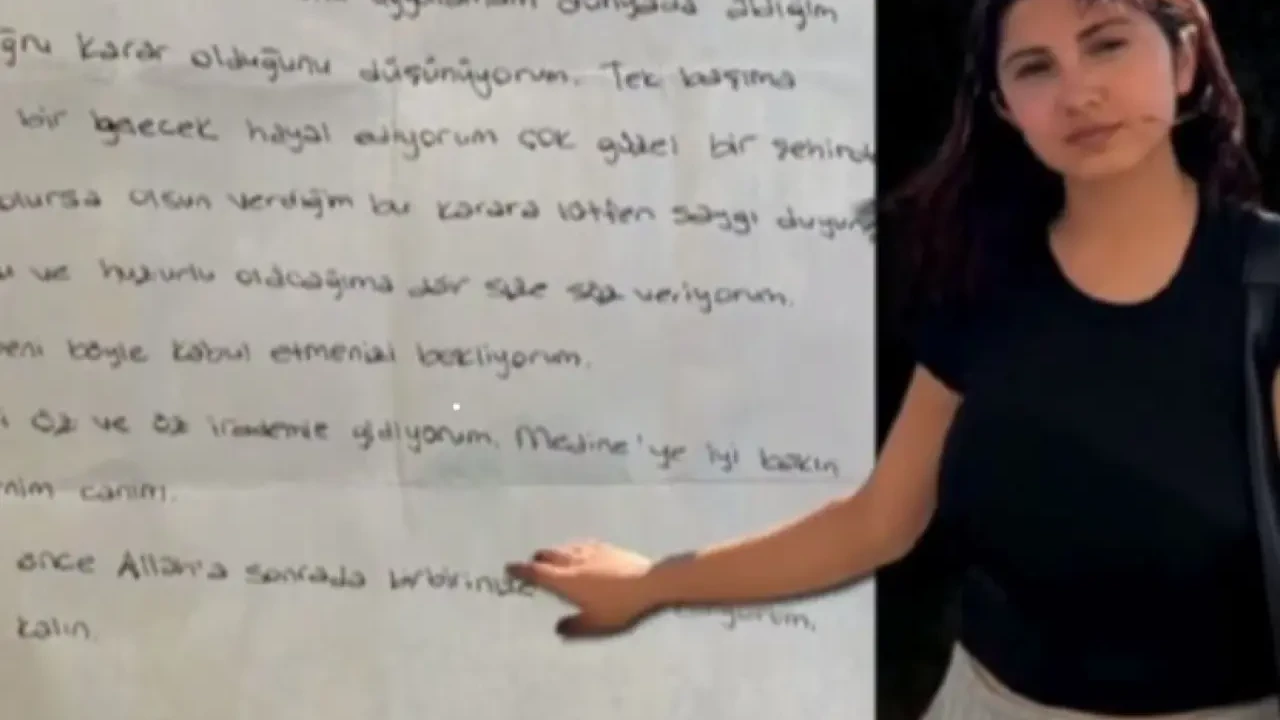 dünyada aldığım
ğru karar olduğunu düşünüyorum. Tek başıma
bir gelecek hayal ediyorum çok güzel bir şehirde
olursa olsun verdiğim bu karara lütfen saygı duyun
ve huzurlu olacağıma dair size söz veriyorum.
beni böyle kabul etmenizi bekliyorum.
öz ve öz irademle gidiyorum. Medine'ye iyi bakın
nim canım.
önce Allah'a sonrada birbirinize
kalın.